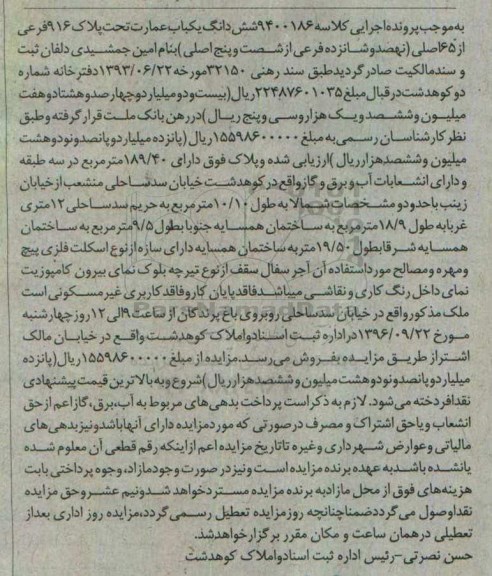 به موجب پرونده اجرایی کلاسه ۹۴۰۰۱۸۶ شش دانگ یکباب عمارت تحت پلاک ۹۱۶ فرعی
از ۶۵ اصلی (نهصدو شانزده فرعی از شصت و پنج اصلی) بنام امین جمشیدی دلفان ثبت
و سند مالکیت صادر گردید طبق سند رهنی ۳۲۱۵۰ مورخه ۱۳۹۳/۰۶/۲۲ دفترخانه شماره
دو کوهدشت در قبال مبلغ ۲۲۴۸۷۶۰۱۰۳۵ ریال (بیست و دو میلیارد و چهارصد و هشتاد و هفت
میلیون و ششصد و یک هزار و سی و پنج ریال) در رهن بانک ملت قرار گرفته و طبق
نظر کارشناسان رسمی به مبلغ ۱۵۵۹۸۶۰۰۰۰۰ ریال (پانزده میلیارد و پانصد و نود و هشت
میلیون و ششصد هزار ریال) ارزیابی شده و پلاک فوق دارای ۱۸۹/۴۰ متر مربع در سه طبقه
و دارای انشعابات آب و برق و گاز واقع در کوهدشت خیابان سدساحلی منشعب از خیابان
زینب با حدود و مشخصات شمالا به طول ۱۰/۱۰ متر مربع به حریم سدساحلی ۱۲ متری
غربا به طول ۱۸/۹ متر مربع به ساختمان همسایه جنوبا بطول ۹/۵ متر مربع به ساختمان
همسایه شرقا بطول ۱۹/۵۰ متر به ساختمان همسایه دارای سازه از نوع اسکلت فلزی پیچ
و مهره و مصالح مورد استفاده آن آجر سفال سقف از نوع تیرچه بلوک نمای بیرون کامپوزیت
نمای داخل رنگ کاری و نقاشی میباشد فاقد پایان کار و فاقد کاربری غیر مسکونی است
ملک مذکور واقع در خیابان سدساحلی روبروی باغ پرندگان از ساعت ۹ الی ۱۲ روز چهارشنبه
مورخ ۱۳۹۶/۰۹/۲۲ در اداره ثبت اسناد و املاک کوهدشت واقع در خیابان مالک
اشتر از طریق مزایده بفروش می رسد. مزایده از مبلغ ۱۵۵۹۸۶۰۰۰۰۰ ریال (پانزده
میلیارد و پانصد و نود و هشت میلیون و ششصد هزار ریال) شروع و به بالاترین قیمت پیشنهادی
نقدا فروخته می شود. لازم به ذکر است پرداخت بدهی های مربوط به آب، برق، گاز اعم از حق
انشعاب و یا حق اشتراک و مصرف در صورتی که مورد مزایده دارای آنها باشد و نیز بدهی های
مالیاتی و عوارض شهرداری و غیره تا تاریخ مزایده اعم از اینکه رقم قطعی آن معلوم شده
یا نشده باشد به عهده برنده مزایده است و نیز در صورت وجود مازاد، وجوه پرداختی بابت
هزینه های فوق از محل مازاد به برنده مزایده مسترد خواهد شد و نیم عشر و حق مزایده
نقدا وصول می گردد ضمنا چنانچه روز مزایده تعطیل رسمی گردد، مزایده روز اداری بعد از
تعطیلی در همان ساعت و مکان مقرر برگزار خواهد شد.
حسن نصرتی - رئیس اداره ثبت اسناد و املاک کوهدشت